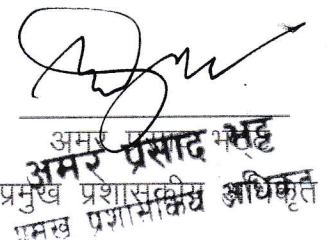 अमर प्रसाद भट्ट
अमर प्रसाद भट्ट
प्रमुख प्रशासकीय अधिकृत
प्रमुख प्रशासकिय अधिकृत